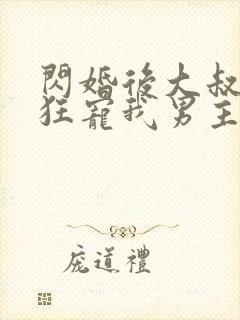 閃婚後大叔
狂寵我男主
龐道禮